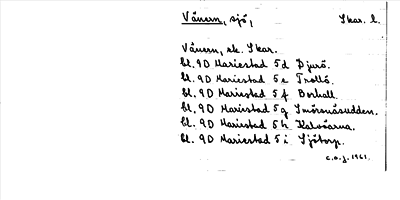 Vänern, sjö, Skar. l.
Vänern, sk. Skar.
bl. 9D Mariestad 5d Djurö.
bl. 9D Mariestad 5e Trollö.
bl. 9D Mariestad 5f Borhall.
bl. 9D Mariestad 5g Smörnäsudden.
bl. 9D Mariestad 5h Kalvöarna.
bl. 9D Mariestad 5i Sjötorp.
C.O.J. 1961.